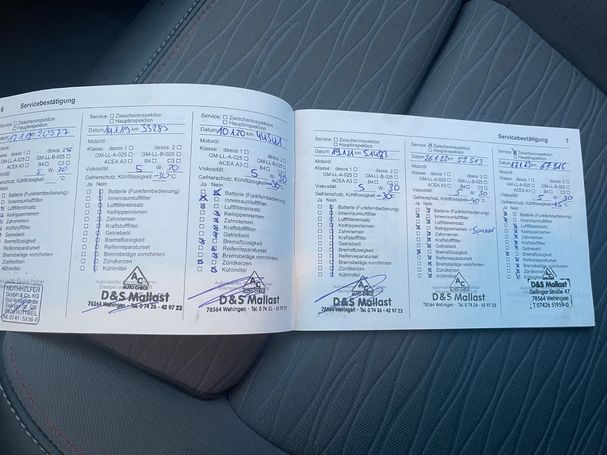 6 Servicebestätigung
Service: Zwischeninspektion
Hauptinspektion
Datum 20577
Motoröl
Klasse: dexos 1 dexos 2
GM-LL-A-025 GM-LL-B-025
ACEA A3 B4 C3
Viskosität: 5 W- 30
Gefrierschutz, Kühlflüssigkeit
Ja Nein
Batterie (Funkfernbedienung)
Innenraumluftfilter
Luftfiltereinsatz
Keilrippenriemen
Zahnriemen
Kraftstofffilter
Getriebeöl
Bremsflüssigkeit
Reifenreparaturset
Bremsbeläge vorn/hinten
Zündkerzen
Kühlmittel
Service: Zwischeninspektion
Hauptinspektion
Datum 11.1.19 km 35285
Motoröl
Klasse: dexos 1 dexos 2
GM-LL-A-025 GM-LL-B-025
ACEA A3 B4 C3
Viskosität: 5 W- 30
Gefrierschutz, Kühlflüssigkeit
Ja Nein
Batterie (Funkfernbedienung)
Innenraumluftfilter
Luftfiltereinsatz
Keilrippenriemen
Zahnriemen
Kraftstofffilter
Getriebeöl
Bremsflüssigkeit
Reifenreparaturset
Bremsbeläge vorn/hinten
Zündkerzen
Kühlmittel
AUTO CHECK
D&S Mallast
78564 Wehingen - Tel. 0 74 26 - 42 97 23
Service: Zwischeninspektion
Hauptinspektion
Datum 10.1.20 km
Motoröl
Klasse: dexos 1 dexos 2
GM-LL-A-025 GM-LL-B-025
ACEA A3 B4 C3
Viskosität: 5 W- 30
Gefrierschutz, Kühlflüssigkeit
Ja Nein
Batterie (Funkfernbedienung)
Innenraumluftfilter
Luftfiltereinsatz
Keilrippenriemen
Zahnriemen
Kraftstofffilter
Getriebeöl
Bremsflüssigkeit
Reifenreparaturset
Bremsbeläge vorn/hinten
Zündkerzen
Kühlmittel
AUTO CHECK
D&S Mallast
78564 Wehingen - Tel. 0 74 26 - 42 97 23
Servicebestätigung 7
Service: Zwischeninspektion
Hauptinspektion
Datum 19.1.21 km 51483
Motoröl
Klasse: dexos 1 dexos 2
GM-LL-A-025 GM-LL-B-025
ACEA A3 B4 C3
Viskosität: 5 W- 30
Gefrierschutz, Kühlflüssigkeit
Ja Nein
Batterie (Funkfernbedienung)
Innenraumluftfilter
Luftfiltereinsatz
Keilrippenriemen
Zahnriemen
Kraftstofffilter
Getriebeöl
Bremsflüssigkeit
Reifenreparaturset
Bremsbeläge vorn/hinten
Zündkerzen
Kühlmittel
AUTO CHECK
D&S Mallast
78564 Wehingen - Tel. 0 74 26 - 42 97 23
Service: Zwischeninspektion
Hauptinspektion
Datum km 57513
Motoröl
Klasse: dexos 1 dexos 2
GM-LL-A-025 GM-LL-B-025
ACEA A3 B4 C3
Viskosität: 5 W- 30
Gefrierschutz, Kühlflüssigkeit
Ja Nein
Batterie (Funkfernbedienung)
Innenraumluftfilter
Luftfiltereinsatz
Keilrippenriemen
Zahnriemen
Kraftstofffilter
Getriebeöl
Bremsflüssigkeit
Reifenreparaturset
Bremsbeläge vorn/hinten
Zündkerzen
Kühlmittel
AUTO CHECK
D&S Mallast
78564 Wehingen - Tel. 0 74 26 - 42 97 23
Service: Zwischeninspektion
Hauptinspektion
Datum km
Motoröl
Klasse: dexos 1 dexos 2
GM-LL-A-025 GM-LL-B-025
ACEA A3 B4 C3
Viskosität: 5 W- 30
Gefrierschutz, Kühlflüssigkeit
Ja Nein
Batterie (Funkfernbedienung)
Innenraumluftfilter
Luftfiltereinsatz
Keilrippenriemen
Zahnriemen
Kraftstofffilter
Getriebeöl
Bremsflüssigkeit
Reifenreparaturset
Bremsbeläge vorn/hinten
Zündkerzen
Kühlmittel
D&S Mallast
Deilinger Straße 47
78564 Wehingen